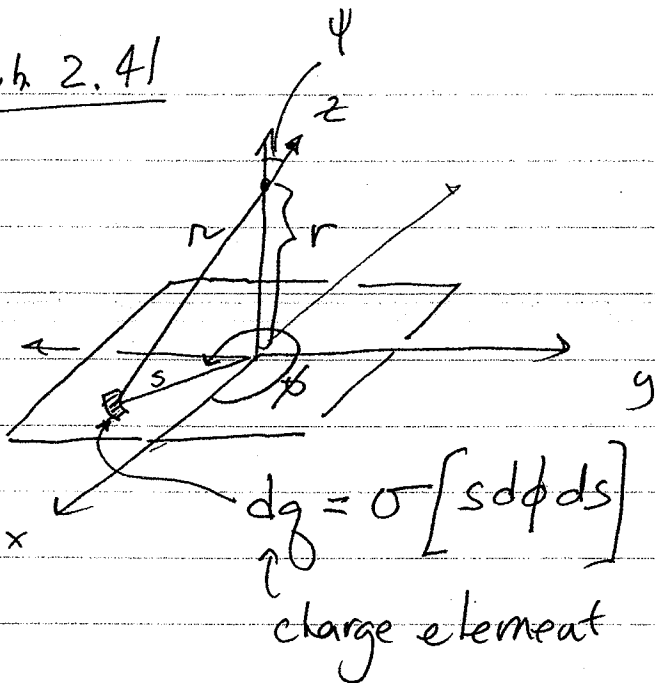 b. 2.41
ψ
z
r
r
s
φ
y
x
dq = σ[s dφ ds]
↑
charge element